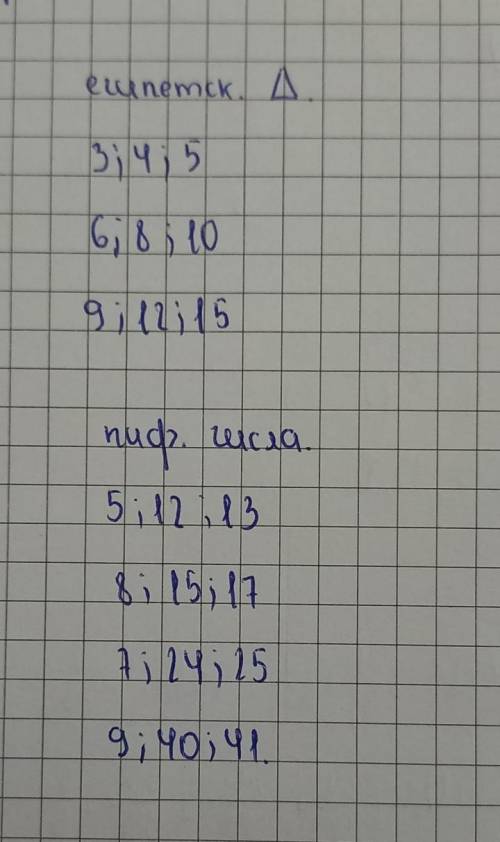 египетск. Δ.
3; 4; 5
6; 8; 10
9; 12; 15
пиф. числа.
5; 12; 13
8; 15; 17
7; 24; 25
9; 40; 41.